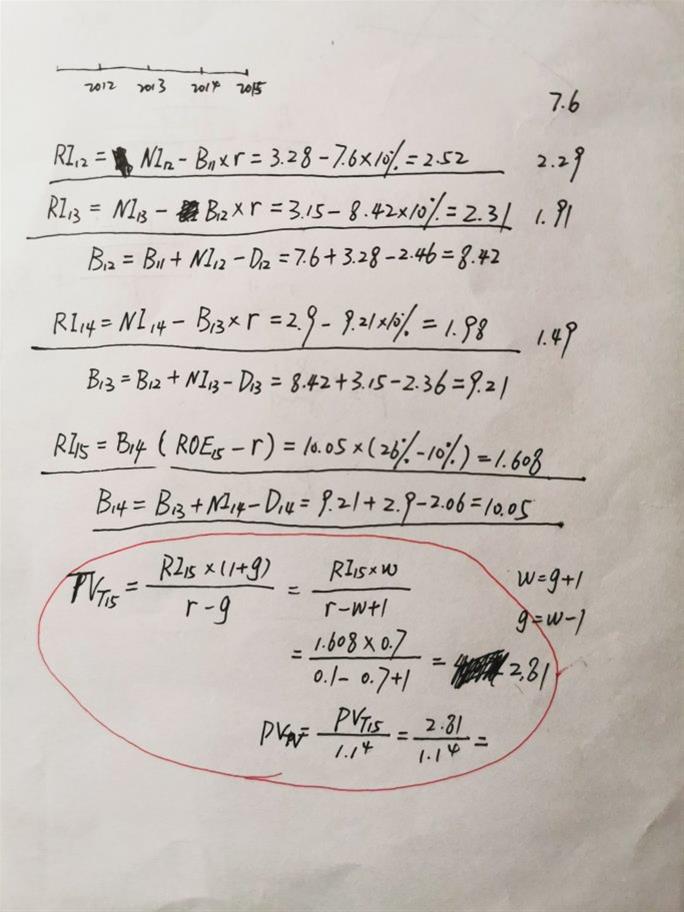 2012 2013 2014 2015
7.6
RI₁₂ = NI₁₂ - B₁₁ × r = 3.28 - 7.6 × 10% = 2.52 2.29
RI₁₃ = NI₁₃ - B₁₂ × r = 3.15 - 8.42 × 10% = 2.31 1.91
B₁₂ = B₁₁ + NI₁₂ - D₁₂ = 7.6 + 3.28 - 2.46 = 8.42
RI₁₄ = NI₁₄ - B₁₃ × r = 2.9 - 9.21 × 10% = 1.98 1.49
B₁₃ = B₁₂ + NI₁₃ - D₁₃ = 8.42 + 3.15 - 2.36 = 9.21
RI₁₅ = B₁₄ (ROE₁₅ - r) = 10.05 × (26% - 10%) = 1.608
B₁₄ = B₁₃ + NI₁₄ - D₁₄ = 9.21 + 2.9 - 2.06 = 10.05
PV_T₁₅ = RI₁₅ × (1+g) / r - g = RI₁₅ × w / r - w + 1 w = g + 1
g = w - 1
= 1.608 × 0.7 / 0.1 - 0.7 + 1 = 2.81
PV = PV_T₁₅ / 1.1⁴ = 2.81 / 1.1⁴ =